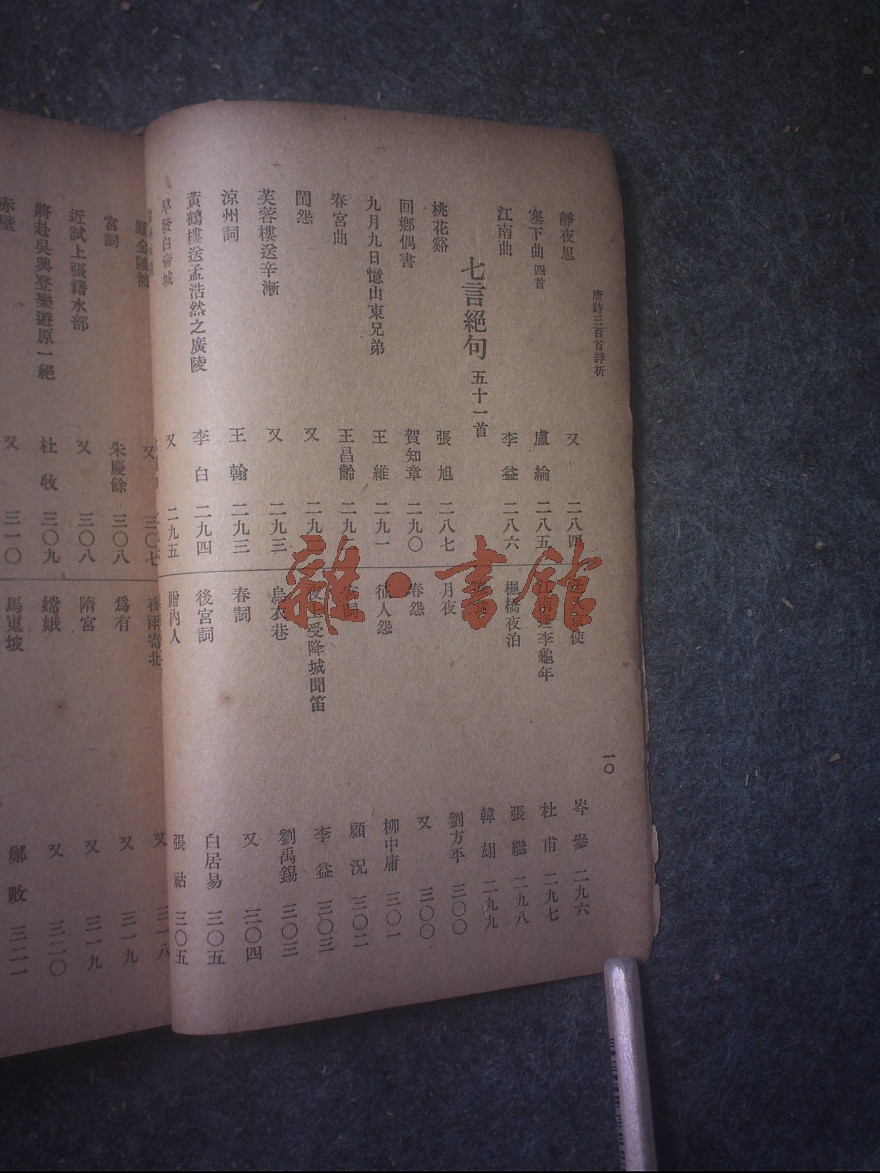 唐詩三百首詳析
一〇
靜夜思 又 二八四
塞下曲 四首 盧綸 二八五
江南曲 李益 二八六
七言絕句 五十一首
桃花谿 張旭 二八七
回鄉偶書 賀知章 二九〇
九月九日憶山東兄弟 王維 二九一
春宮曲 王昌齡 二九
閨怨 又 二九
芙蓉樓送辛漸 又 二九三
涼州詞 王翰 二九三
黃鶴樓送孟浩然之廣陵 李白 二九四
早發白帝城 又 二九五
使 岑參 二九六
李龜年 杜甫 二九七
楓橋夜泊 張繼 二九八
韓翃 二九九
月夜 劉方平 三〇〇
春怨 又 三〇〇
征人怨 柳中庸 三〇一
顧況 三〇二
夜上受降城聞笛 李益 三〇三
烏衣巷 劉禹錫 三〇三
春詞 又 三〇四
後宮詞 白居易 三〇五
贈內人 張祜 三〇五
題金陵渡 又 三〇七
宮詞 朱慶餘 三〇八
近試上張籍水部 又 三〇八
將赴吳興登樂遊原一絕 杜牧 三〇九
赤壁 又 三一〇
夜雨寄北 又 三一八
爲有 又 三一九
隋宮 又 三一九
嫦娥 又 三二〇
馬嵬坡 鄭畋 三二一
雜·書館